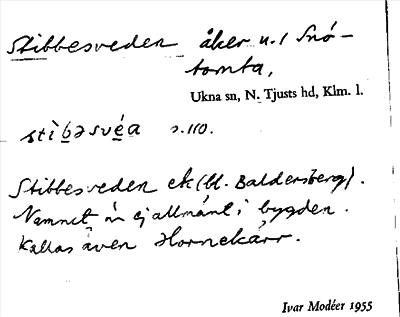 Stibbesveden åker u. / Snö-
tomta,
Ukna sn, N. Tjusts hd, Klm. l.
stìb̲əsve̲a s. 110.
Stibbesveden ek (bl. Baldersberg).
Namnet är ej allmänt i bygden.
Kallas även Hornekärr.
Ivar Modéer 1955